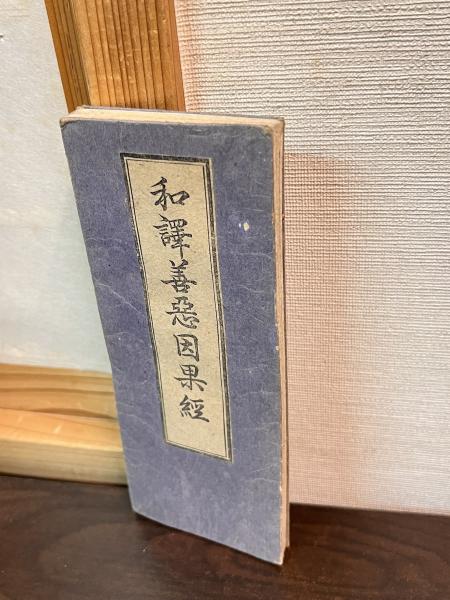 和譯善惡因果經